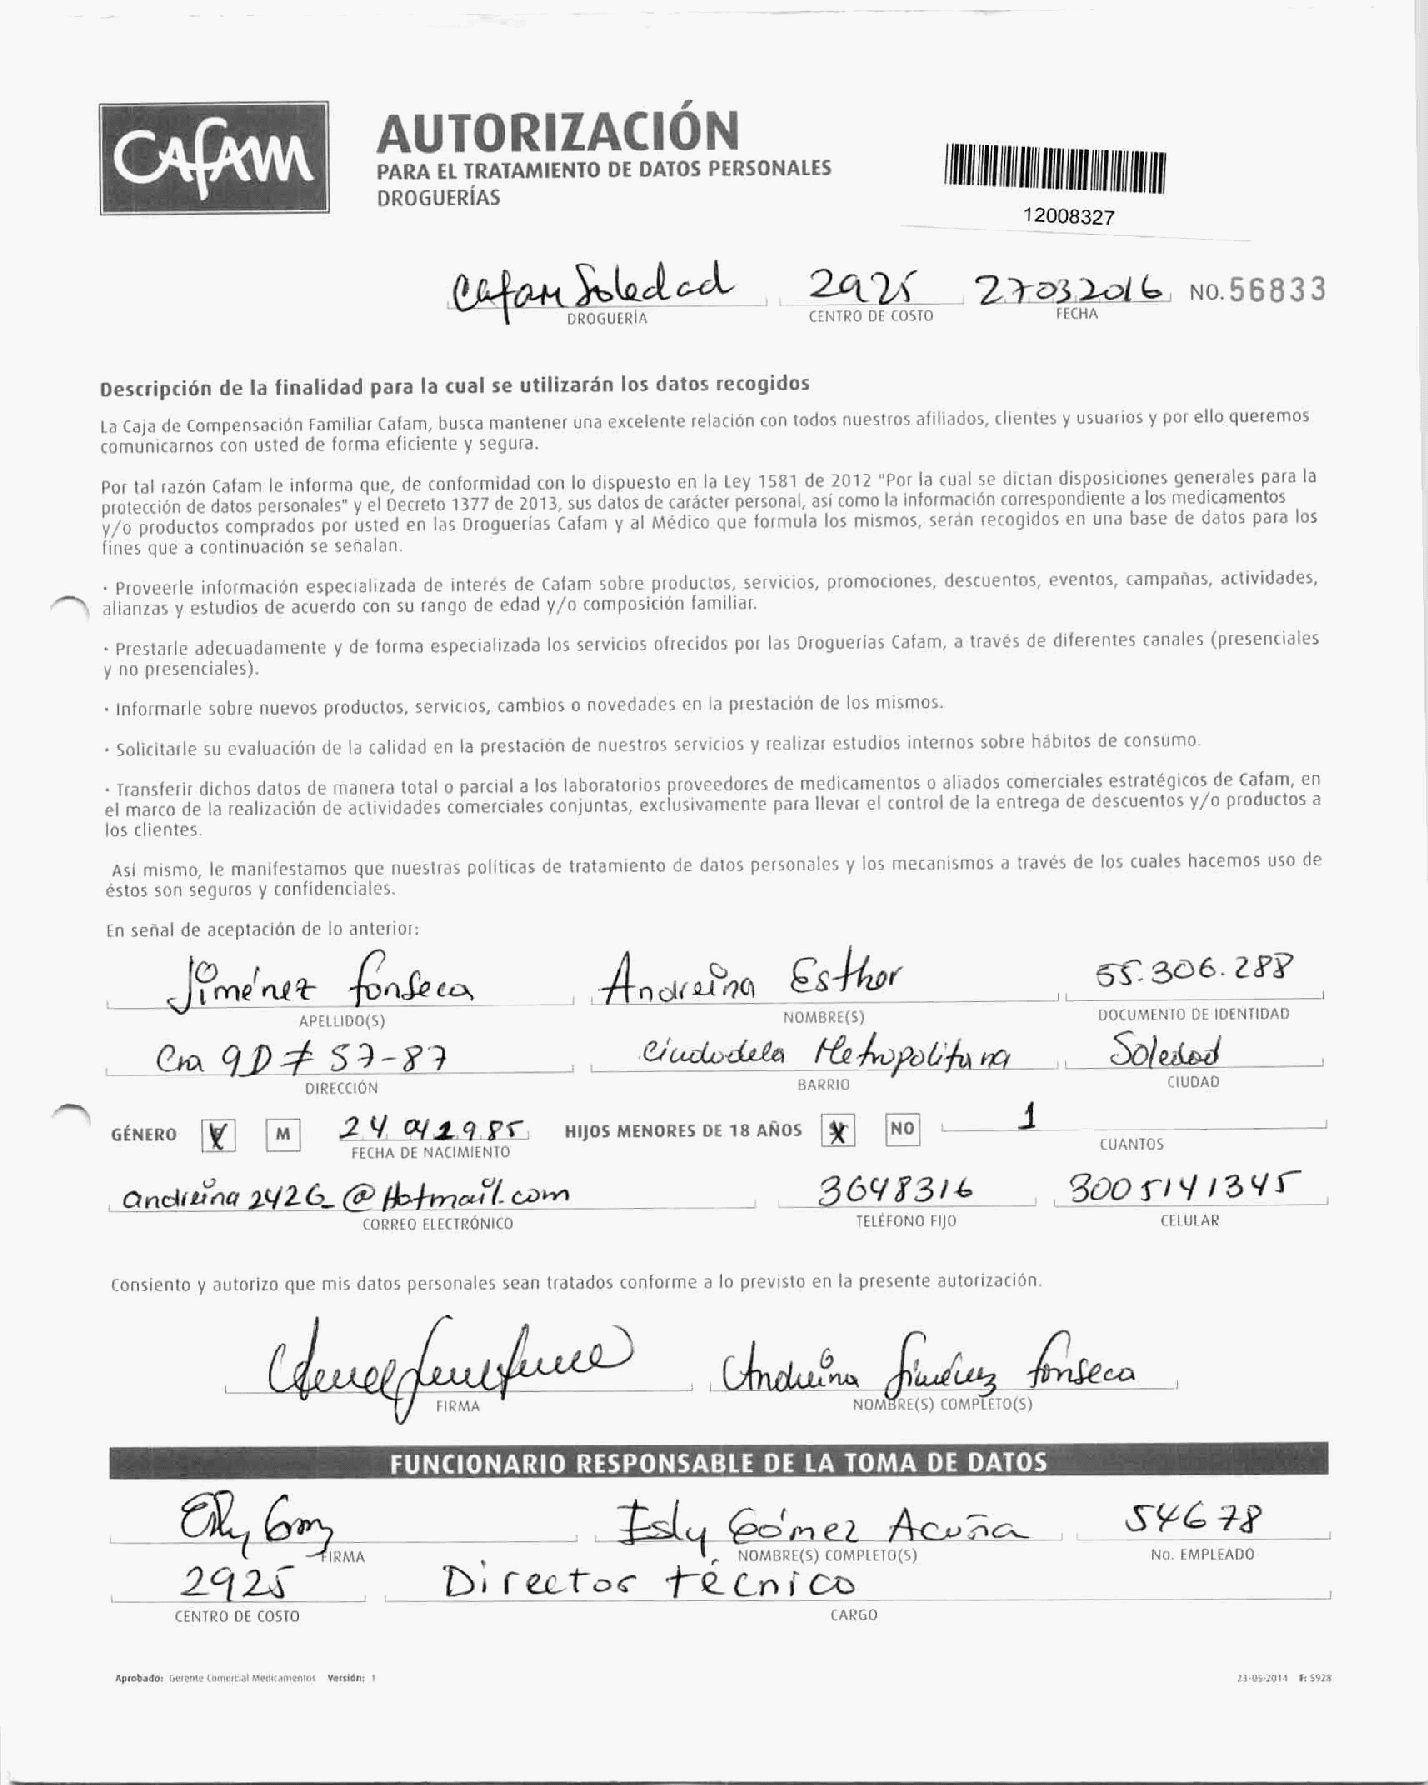 CAFAM
AUTORIZACIÓN
PARA EL TRATAMIENTO DE DATOS PERSONALES
DROGUERÍAS
12008327
Cafam Soledad 2925 27032016 NO.56833
DROGUERÍA CENTRO DE COSTO FECHA
Descripción de la finalidad para la cual se utilizarán los datos recogidos
La Caja de Compensación Familiar Cafam, busca mantener una excelente relación con todos nuestros afiliados, clientes y usuarios y por ello queremos
comunicarnos con usted de forma eficiente y segura.
Por tal razón Cafam le informa que, de conformidad con lo dispuesto en la Ley 1581 de 2012 "Por la cual se dictan disposiciones generales para la
protección de datos personales" y el Decreto 1377 de 2013, sus datos de carácter personal, así como la información correspondiente a los medicamentos
y/o productos comprados por usted en las Droguerías Cafam y al Médico que formula los mismos, serán recogidos en una base de datos para los
fines que a continuación se señalan.
· Proveerle información especializada de interés de Cafam sobre productos, servicios, promociones, descuentos, eventos, campañas, actividades,
alianzas y estudios de acuerdo con su rango de edad y/o composición familiar.
· Prestarle adecuadamente y de forma especializada los servicios ofrecidos por las Droguerías Cafam, a través de diferentes canales (presenciales
y no presenciales).
· Informarle sobre nuevos productos, servicios, cambios o novedades en la prestación de los mismos.
· Solicitarle su evaluación de la calidad en la prestación de nuestros servicios y realizar estudios internos sobre hábitos de consumo.
· Transferir dichos datos de manera total o parcial a los laboratorios proveedores de medicamentos o aliados comerciales estratégicos de Cafam, en
el marco de la realización de actividades comerciales conjuntas, exclusivamente para llevar el control de la entrega de descuentos y/o productos a
los clientes.
Así mismo, le manifestamos que nuestras políticas de tratamiento de datos personales y los mecanismos a través de los cuales hacemos uso de
éstos son seguros y confidenciales.
En señal de aceptación de lo anterior:
Jiménez Fonseca Andreina Esther 55.306.288
APELLIDO(S) NOMBRE(S) DOCUMENTO DE IDENTIDAD
Cra 9D # 57-87 Ciudadela Metropolitana Soledad
DIRECCIÓN BARRIO CIUDAD
GÉNERO M 24 04 1985 HIJOS MENORES DE 18 AÑOS NO 1
FECHA DE NACIMIENTO CUANTOS
andreina2426_@Hotmail.com 3648316 3005141345
CORREO ELECTRÓNICO TELÉFONO FIJO CELULAR
Consiento y autorizo que mis datos personales sean tratados conforme a lo previsto en la presente autorización.
Andreina Jiménez Fonseca
FIRMA NOMBRE(S) COMPLETO(S)
FUNCIONARIO RESPONSABLE DE LA TOMA DE DATOS
Isly Gómez Acuña 54678
FIRMA NOMBRE(S) COMPLETO(S) No. EMPLEADO
2925 Director técnico
CENTRO DE COSTO CARGO
Aprobado: Gerente Comercial Medicamentos Versión: 1 23-05-2014 F: 5928